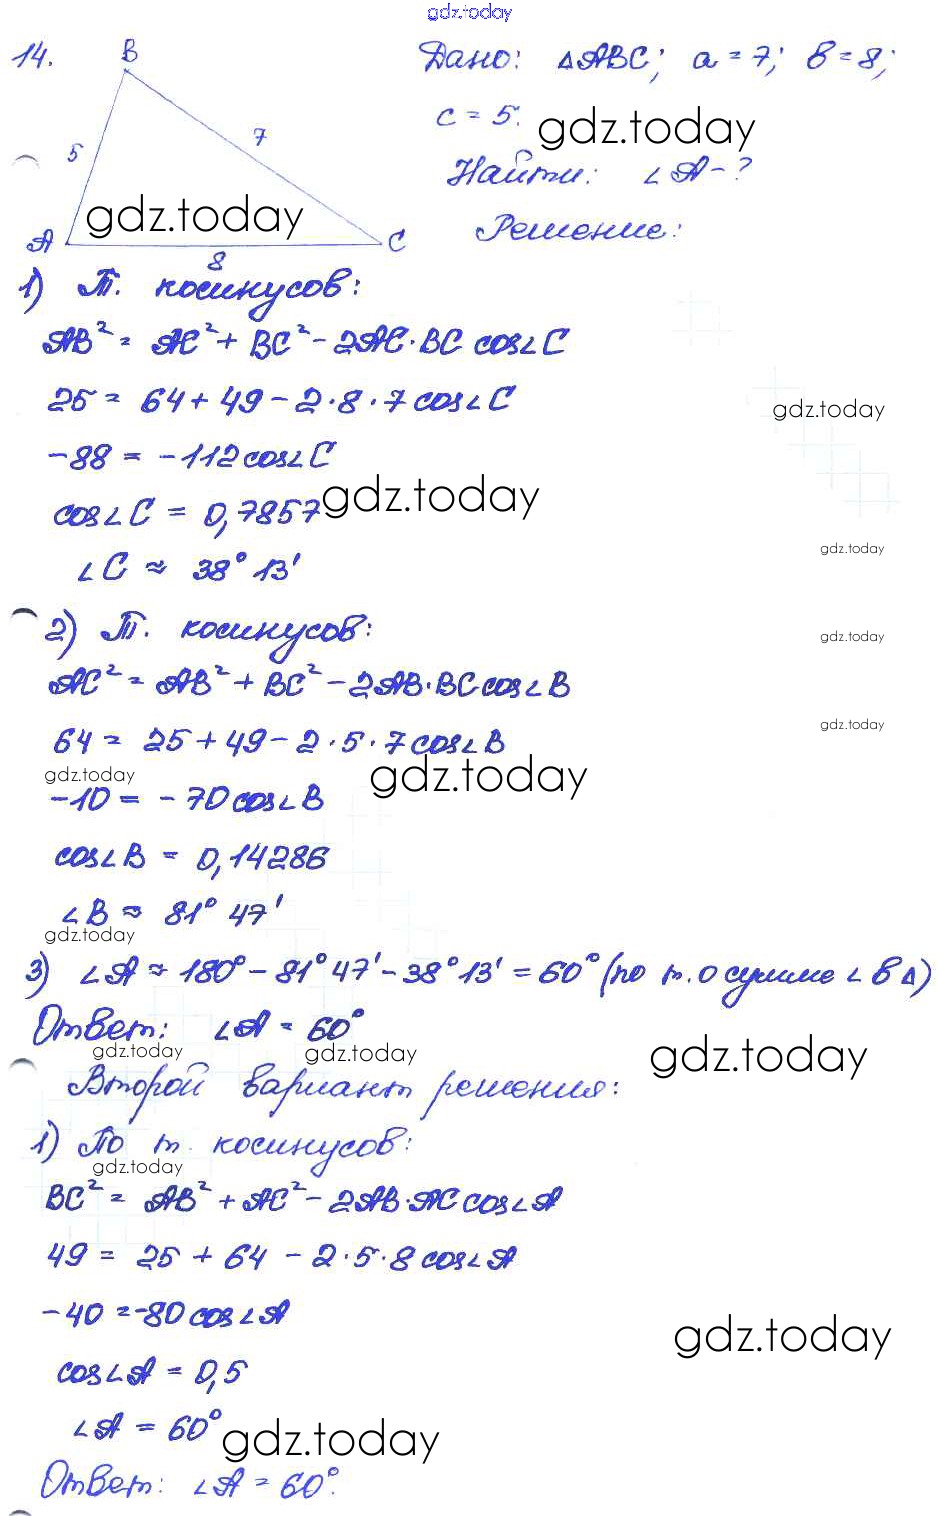 gdz.today
14.
B
Дано: △ABC; a=7; b=8;
5
7
c=5.
gdz.today
Найти: ∠A-?
gdz.today
A
C
8
Решение:
1) Т. косинусов:
AB² = AC² + BC² - 2AC·BC cos∠C
25 = 64 + 49 - 2·8·7 cos∠C
gdz.today
-88 = -112 cos∠C
gdz.today
cos∠C = 0,7857
∠C ≈ 38° 13'
gdz.today
2) Т. косинусов:
gdz.today
AC² = AB² + BC² - 2AB·BC cos∠B
gdz.today
64 = 25 + 49 - 2·5·7 cos∠B
gdz.today
gdz.today
-10 = -70 cos∠B
cos∠B = 0,14286
∠B ≈ 81° 47'
gdz.today
3) ∠A ≈ 180° - 81° 47' - 38° 13' = 60° (по т. о сумме ∠ в △)
Ответ: ∠A = 60°
gdz.today
gdz.today
gdz.today
Второй вариант решения:
1) По т. косинусов:
gdz.today
BC² = AB² + AC² - 2AB·AC cos∠A
49 = 25 + 64 - 2·5·8 cos∠A
-40 = -80 cos∠A
gdz.today
cos∠A = 0,5
∠A = 60°
gdz.today
Ответ: ∠A = 60°.